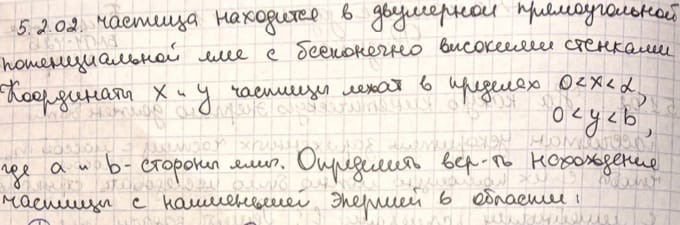 5.2.02. частица находится в двумерной прямоугольной
потенциальной яме с бесконечно високими стенками
Координаты x и y частицы лежат в пределах 0<x<a,
0<y<b,
где a и b - стороны ямы. Определить вер-ть нахождение
частицы с наименьшей энергией в области: